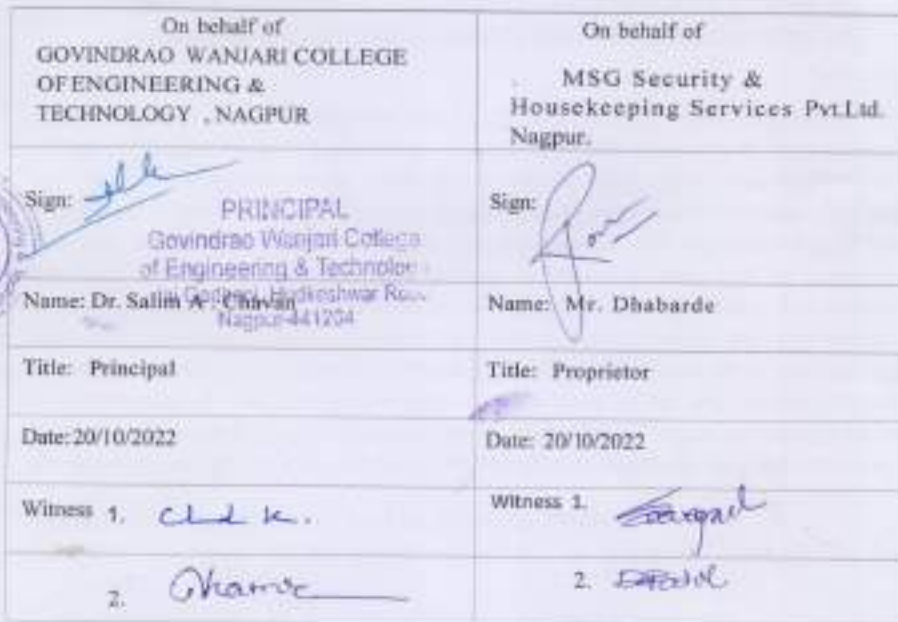 On behalf of
GOVINDRAO WANJARI COLLEGE
OF ENGINEERING &
TECHNOLOGY , NAGPUR
On behalf of
MSG Security &
Housekeeping Services Pvt.Ltd.
Nagpur.
Sign:
PRINCIPAL
Govindrao Wanjari College
of Engineering & Technology
Hudkeshwar
Nagpur-441204
Sign:
Name: Dr. Salim A. Chavan
Name: Mr. Dhabarde
Title: Principal
Title: Proprietor
Date: 20/10/2022
Date: 20/10/2022
Witness 1.
Witness 1.
2.
2.